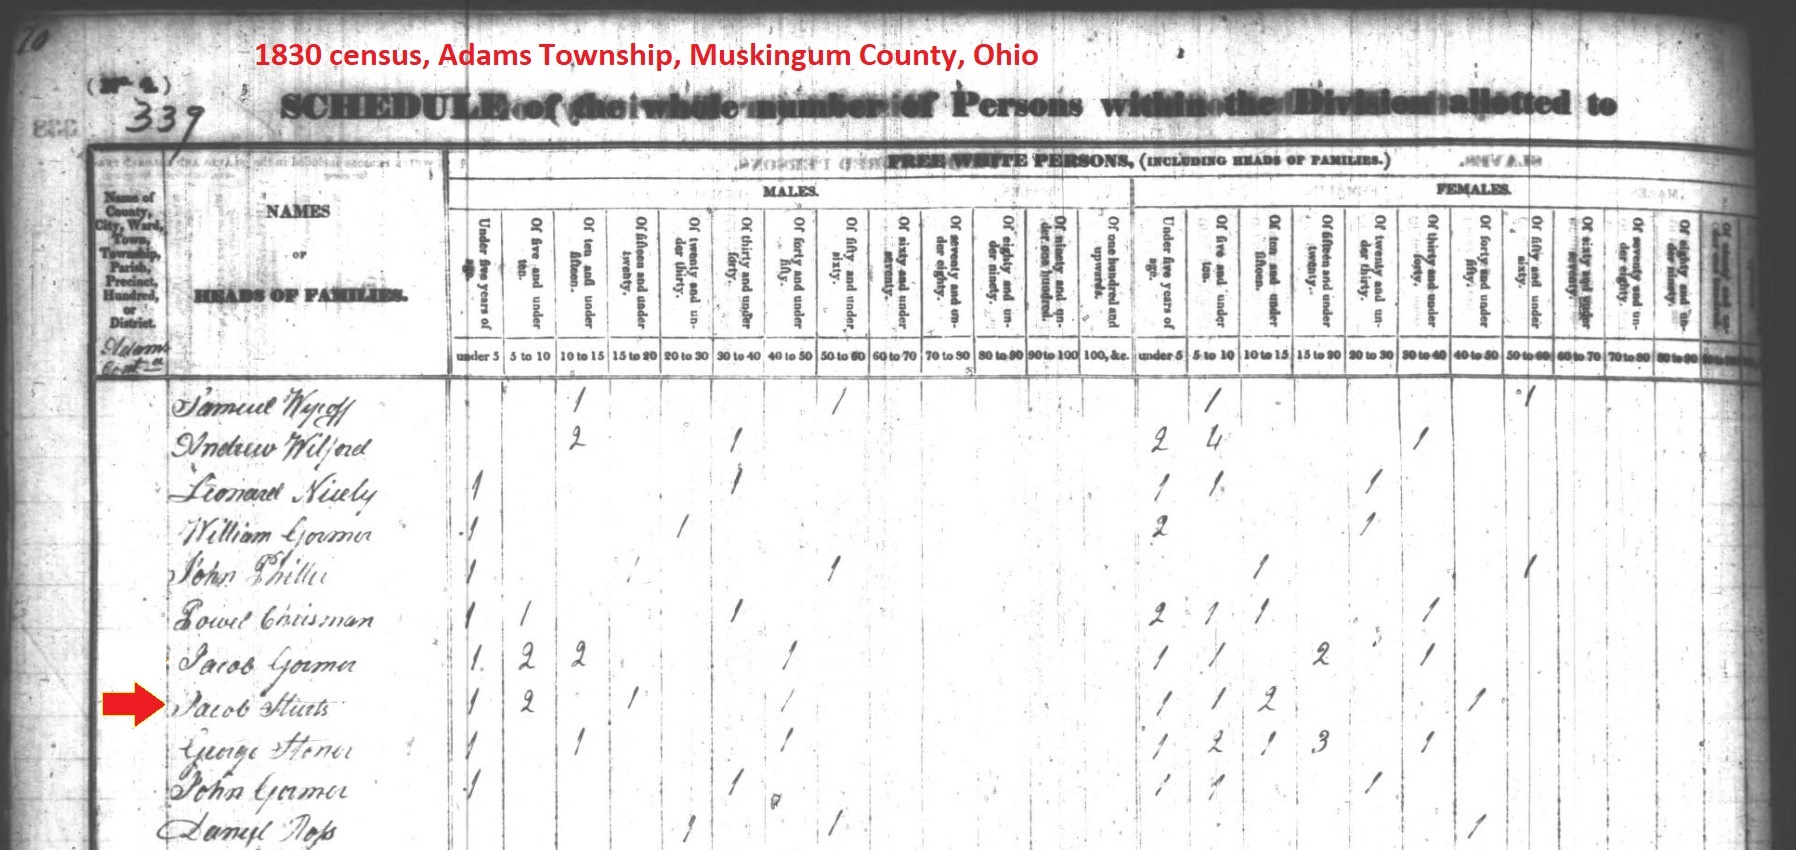 70
1830 census, Adams Township, Muskingum County, Ohio
339
SCHEDULE of the whole number of Persons within the Division allotted to
FREE WHITE PERSONS, (INCLUDING HEADS OF FAMILIES.)
MALES. FEMALES.
Name of County, City, Ward, Town, Township, Parish, Precinct, Hundred, or District.
NAMES
OF
HEADS OF FAMILIES.
Under five years of age. Of five and under ten. Of ten and under fifteen. Of fifteen and under twenty. Of twenty and under thirty. Of thirty and under forty. Of forty and under fifty. Of fifty and under sixty. Of sixty and under seventy. Of seventy and under eighty. Of eighty and under ninety. Of ninety and under one hundred. Of one hundred and upwards. Under five years of age. Of five and under ten. Of ten and under fifteen. Of fifteen and under twenty. Of twenty and under thirty. Of thirty and under forty. Of forty and under fifty. Of fifty and under sixty. Of sixty and under seventy. Of seventy and under eighty. Of eighty and under ninety.
Adams
under 5 5 to 10 10 to 15 15 to 20 20 to 30 30 to 40 40 to 50 50 to 60 60 to 70 70 to 80 80 to 90 90 to 100 100, &c. under 5 5 to 10 10 to 15 15 to 20 20 to 30 30 to 40 40 to 50 50 to 60 60 to 70 70 to 80 80 to 90
Samuel Wycoff 1 1 1 1
Andrew Wilford 2 1 2 4 1
Leonard Nicely 1 1 1 1 1
William Gormer 1 1 2 1
John 1 1 1 1 1
Powel Chrisman 1 1 1 2 1 1 1
Jacob Gormer 1 2 2 1 1 1 2 1
Jacob Sturts 1 2 1 1 1 1 2 1
George Stoner 1 1 1 1 2 1 3 1
John Gormer 1 1 1 1 1
Daniel Ross 1 1 1